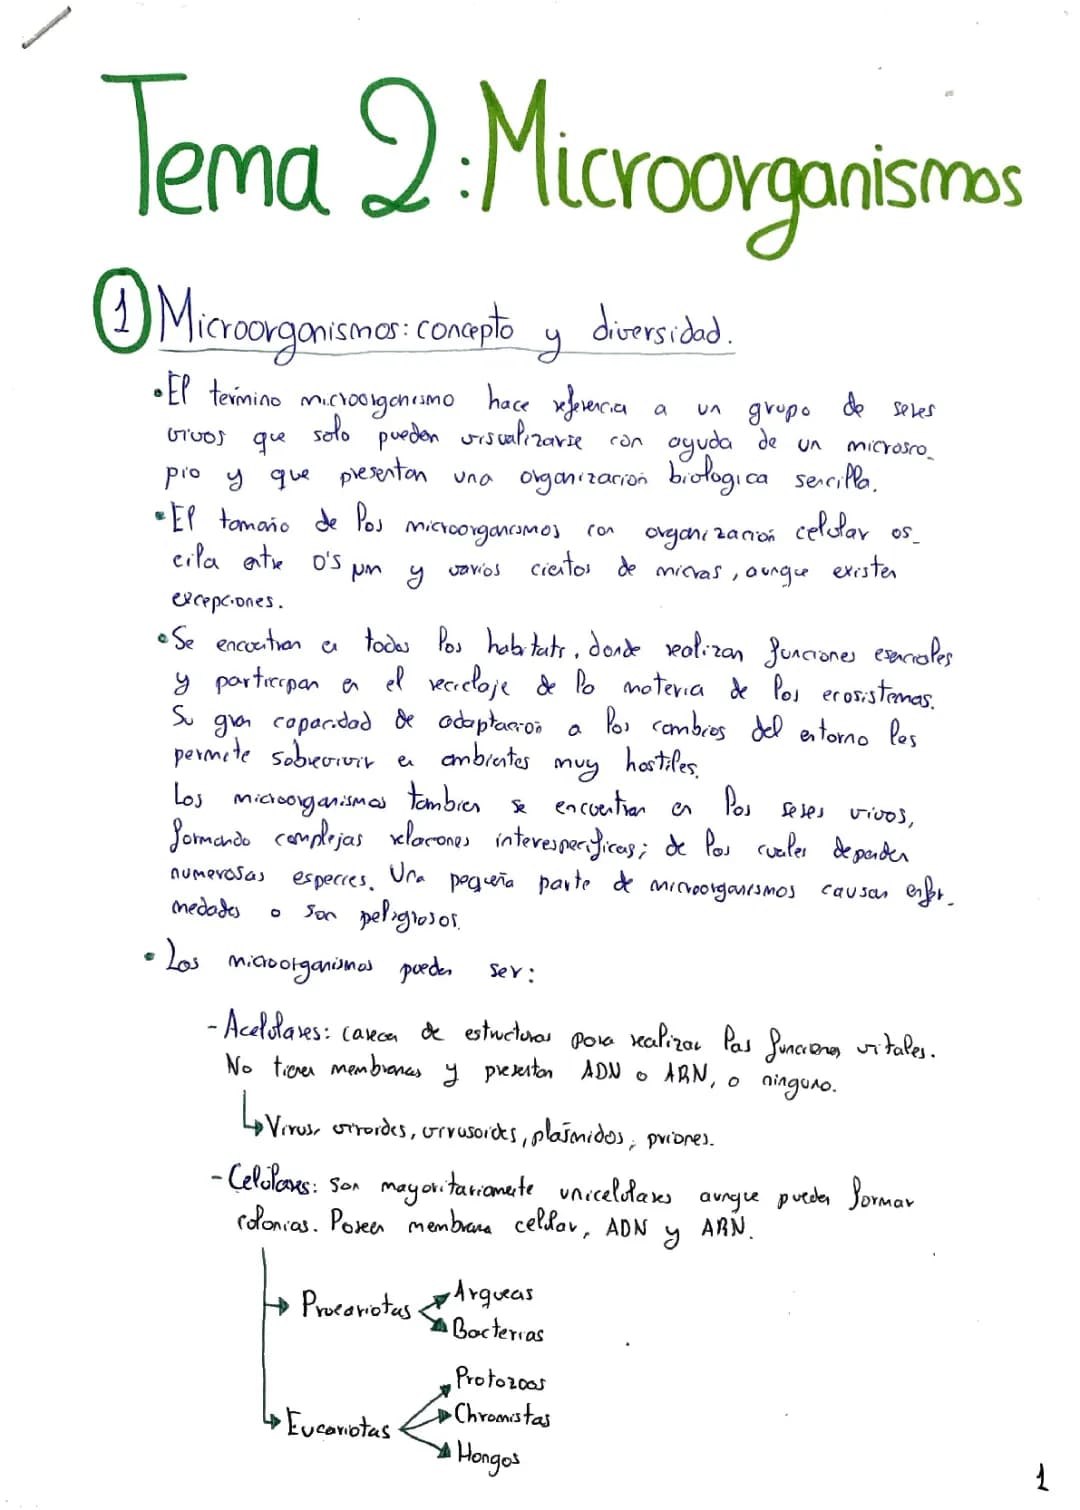 Tema 2: Microorganismos
1 Microorganismos: concepto y diversidad.
• El termino microorganismo hace referencia a un grupo de seres
vivos que solo pueden visualizarse con ayuda de un microsco_
pio y que presentan una organización biologica sencilla.
• El tamaño de los microorganismos con organización celular os_
cila entre 0's µm y varios cientos de micras, aunque existen
excepciones.
• Se encuentran en todos los habitats, donde realizan funciones esenciales
y participan en el reciclaje de la materia de los ecosistemas.
Su gran capacidad de adaptación a los cambios del entorno les
permite sobrevivir en ambientes muy hostiles.
Los microorganismos tambien se encuentran en los seres vivos,
formando complejas relaciones interespecificas; de los cuales dependen
numerosas especies. Una pequeña parte de microorganismos causan enfer_
medades o son peligrosos.
• Los microorganismos pueden ser:
- Acelulares: carecen de estructuras para realizar las funciones vitales.
No tienen membranas y presentan ADN o ARN, o ninguno.
↳ Virus, viroides, virusoides, plásmidos, priones.
- Celulares: son mayoritariamente unicelulares aunque pueden formar
colonias. Poseen membrana celular, ADN y ARN.
→ Procariotas
Arqueas
Bacterias
→ Eucariotas
Protozoos
Chromistas
Hongos
1